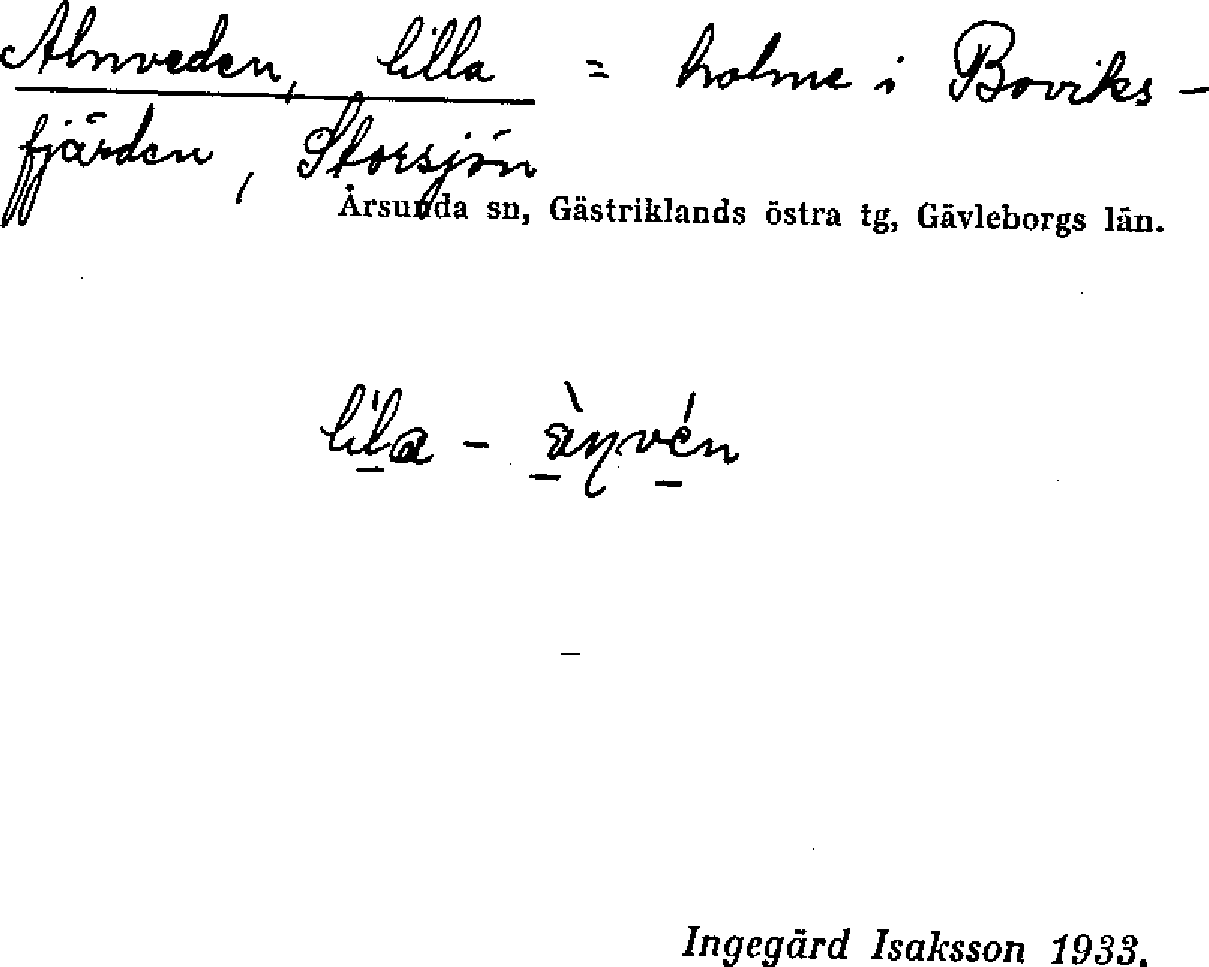 Alnveden, lilla = holme i Boviks-
fjärden, Storsjön
Årsunda sn, Gästriklands östra tg, Gävleborgs län.
lila - ànvén
Ingegärd Isaksson 1933.